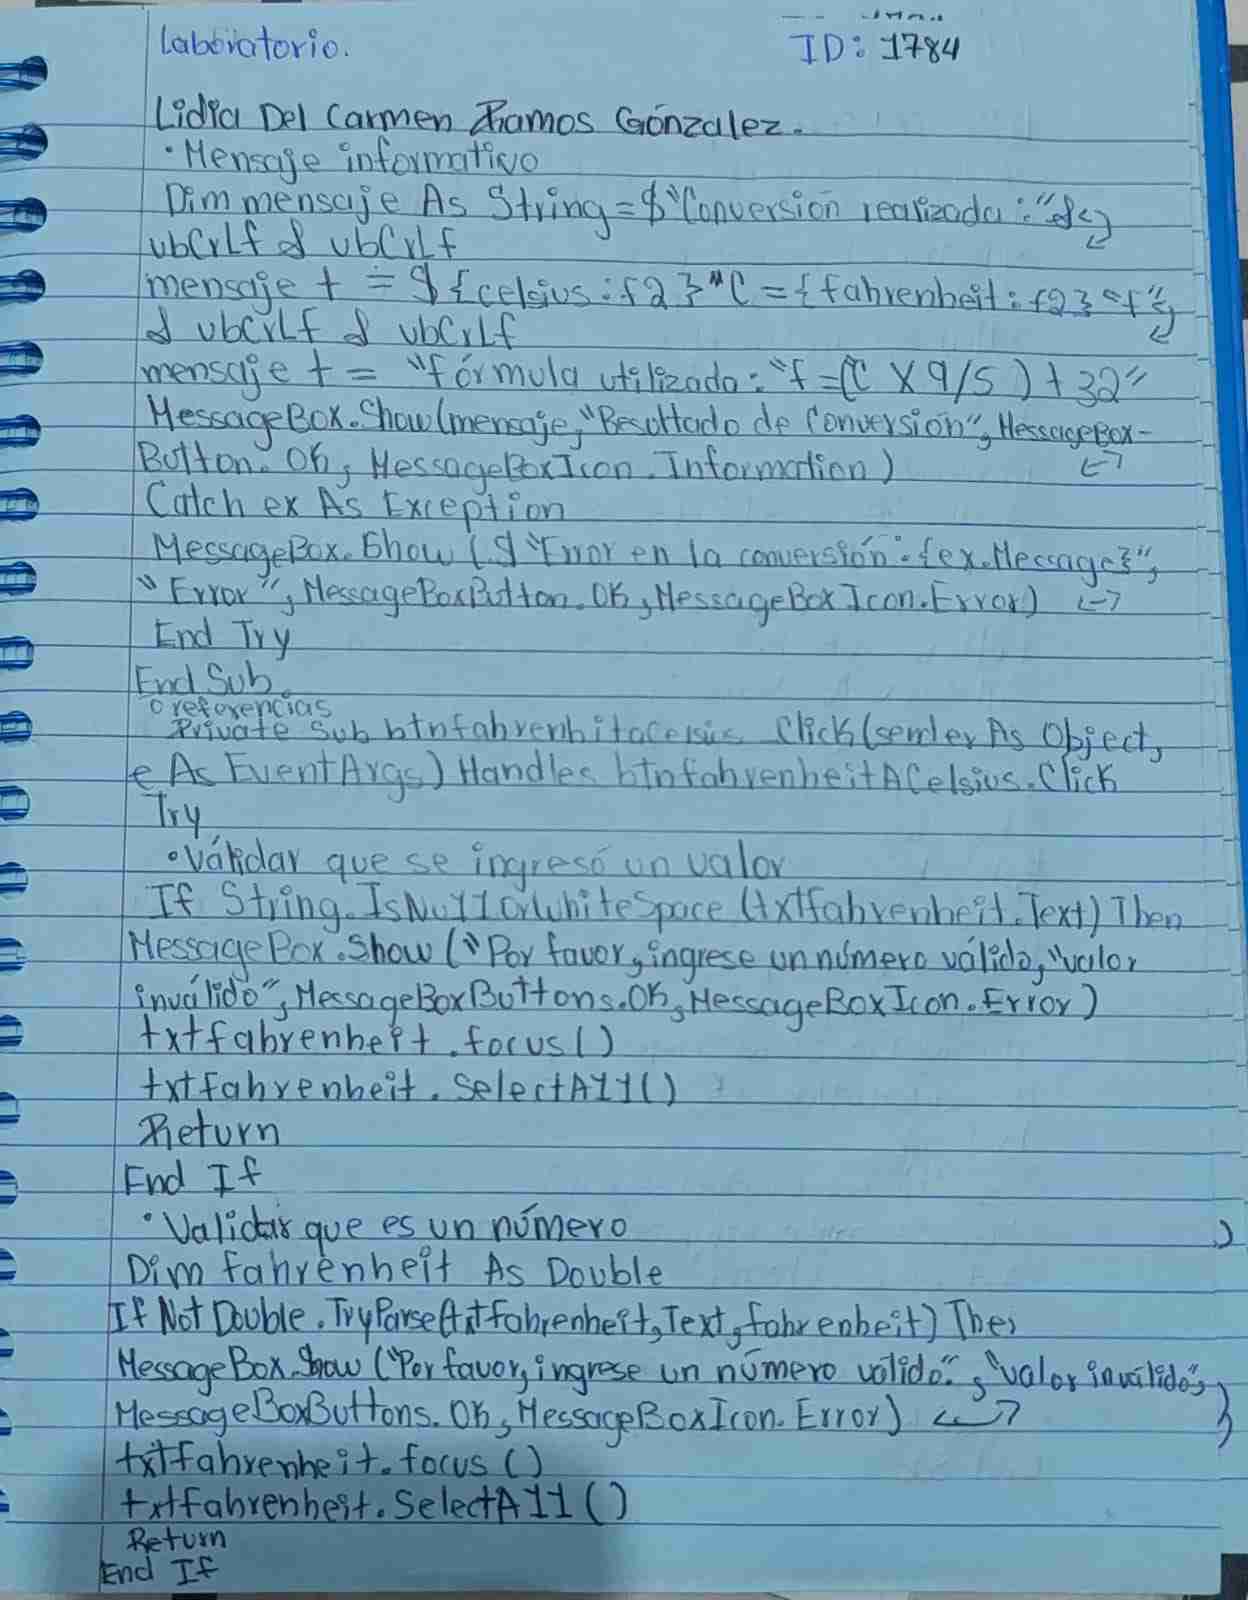 Laboratorio.
ID: 1784
Lidia Del Carmen Ramos Gónzalez.
•Mensaje informativo
Dim mensaje As String = $"Conversión realizada:" &
vbCrLf & vbCrLf
mensaje += ${celsius:f2}°C = {fahrenheit:f2}°f"
& vbCrLf & vbCrLf
mensaje += "fórmula utilizada: "f = (°C X 9/5) + 32"
MessageBox.Show(mensaje, "Resultado de Conversión", MessageBox-
Button.OK, MessageBoxIcon.Information)
Catch ex As Exception
MessageBox.Show($"Error en la conversión: {ex.Message}",
"Error", MessageBoxButton.OK, MessageBoxIcon.Error)
End Try
End Sub.
0 referencias
Private Sub btnfahrenhitaCelsius_Click(sender As Object,
e As EventArgs) Handles btnfahrenheitACelsius.Click
Try
•Válidar que se ingresó un valor
If String.IsNullOrWhiteSpace (txtfahrenheit.Text) Then
MessageBox.Show ("Por favor, ingrese un número válido, "valor
inválido", MessageBoxButtons.OK, MessageBoxIcon.Error)
txtfahrenheit.focus()
txtfahrenheit.SelectAll()
Return
End If
•Validar que es un número
Dim fahrenheit As Double
If Not Double.TryParse(txtfahrenheit, Text, fahrenheit) Then
MessageBox.Show ("Por favor, ingrese un número válido.", "valor inválido",
MessageBoxButtons.OK, MessageBoxIcon.Error)
txtfahrenheit.focus ()
txtfahrenheit.SelectAll ()
Return
End If